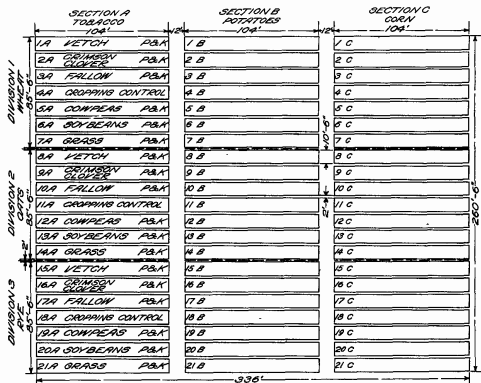 SECTION A
TOBACCO
104'
12'
SECTION B
POTATOES
104'
12'
SECTION C
CORN
104'
DIVISION 1
WHEAT
85'-6"
1A VETCH P&K
1 B
1 C
2A CRIMSON CLOVER P&K
2 B
2 C
3A FALLOW P&K
3 B
3 C
4A CROPPING CONTROL
4 B
4 C
5A COWPEAS P&K
5 B
5 C
6A SOYBEANS P&K
6 B
6 C
7A GRASS P&K
7 B
7 C
10'-6"
DIVISION 2
OATS
85'-6"
8A VETCH P&K
8 B
8 C
9A CRIMSON CLOVER P&K
9 B
9 C
10A FALLOW P&K
10 B
10 C
11A CROPPING CONTROL
11 B
2'
11 C
12A COWPEAS P&K
12 B
12 C
13A SOYBEANS P&K
13 B
13 C
14A GRASS P&K
14 B
14 C
2'
DIVISION 3
RYE
85'-6"
15A VETCH P&K
15 B
15 C
16A CRIMSON CLOVER P&K
16 B
16 C
17A FALLOW P&K
17 B
17 C
18A CROPPING CONTROL
18 B
18 C
19A COWPEAS P&K
19 B
19 C
20A SOYBEANS P&K
20 B
20 C
21A GRASS P&K
21 B
21 C
260'-6"
336'